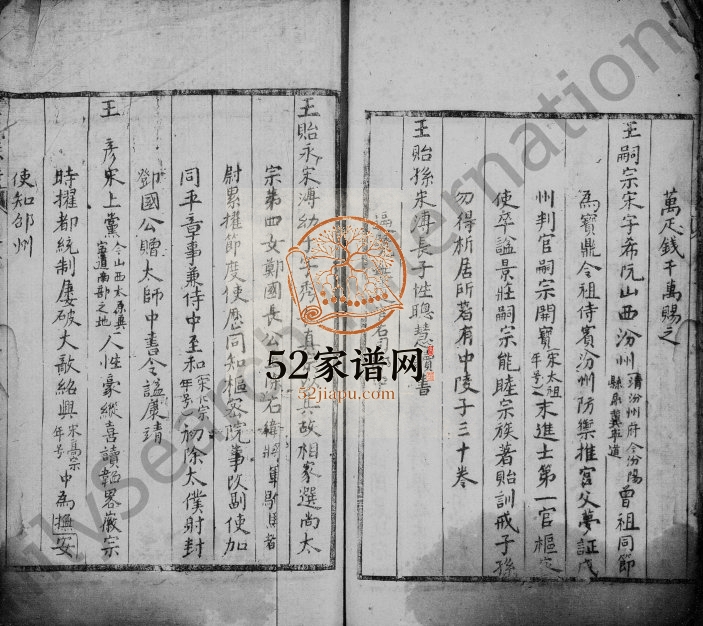 萬疋錢千萬賜之
王嗣宗宋字希阮山西汾州清汾州府今汾陽縣屬冀寧道曾祖同節
為寶鼎令祖侍賓汾州防禦推官父夢証
州判官嗣宗開寶宋太祖年号末進士第一官樞
使卒謚景莊嗣宗能睦宗族著貽訓戒子孫
勿得析居所著有中陵子三十卷
王貽孫宋溥長子性聰慧
王貽永宋溥幼子字 故相家選尚太
宗第四女鄭國長公 右衛將軍駙馬者
尉累擢節度使歷同知樞密院事改副使加
同平章事兼侍中至和宋仁宗年号初除太僕射封
鄧國公贈太師中書令謚康靖
王 彥宋上黨今山西太原冀寧道南部之地人性豪縱喜讀韜畧徽宗
時擢都統制屢破大敵紹興宋高宗年号中為撫安
使知邵州
52家谱网
52jiapu.com